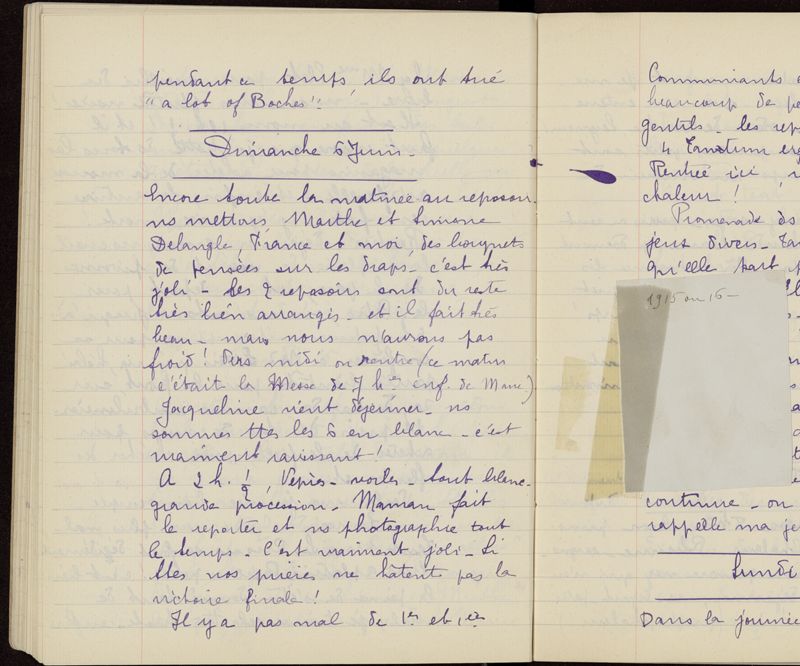 pendant ce temps, ils ont tué
"a lot of Boches".
Dimanche 6 Juin.
Encore toute la matinée au reposoir.
ns mettons, Marthe et Simone
Delangle, France et moi, des bouquets
de pensées sur les draps - c'est très
joli - Les 2 reposoirs sont du reste
très bien arrangés - et il fait très
beau - mais nous n'aurons pas
froid ! Vers midi on rentre (ce matin
c'était la Messe de 7 h es enf. de Marie)
Jacqueline vient déjeuner - ns
sommes ttes les 5 en blanc - c'est
vraiment ravissant !
A 2 h. 1/2, Vêpres - voiles - tout blanc -
grande procession - Maman fait
le reporter et ns photographie tout
le temps - C'est vraiment joli - Si
ttes nos prières ne hâtent pas la
victoire finale !
Il y a pas mal de 1rs et 1res
Communiants
beaucoup de
gentils - les
4 Tantum
Rentrée ici
chaleur !
Promenade ds
jeux divers -
qu'elle part
1915 ou 16 -
continue - on
rappelle ma
Lundi
Dans la journée